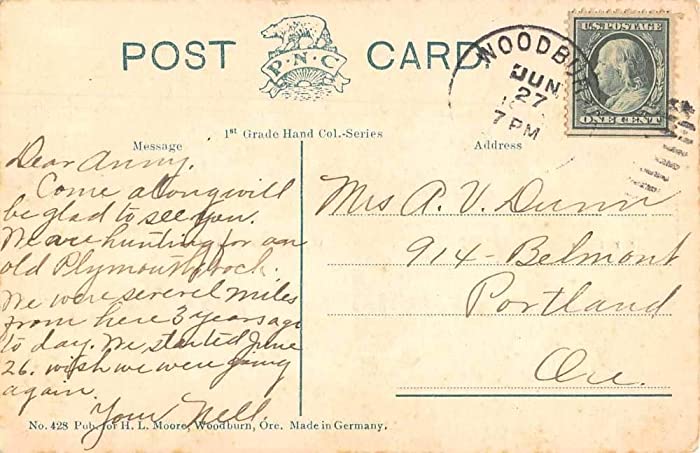 POST CARD
P·N·C
U.S. POSTAGE
ONE CENT
WOODBURN
JUN
27
7 PM
1st Grade Hand Col.-Series
Message
Address
Dear Anny.
Come along will
be glad to see you.
We are hunting for an
old Plymouth rock.
We were severel miles
from here 3 years ago
to day. We started June
26. wish we were going
again.
Your Nell.
Mrs A. V. Dunn
914- Belmont
Portland
Ore.
No. 428 Pub. for H. L. Moore, Woodburn, Ore. Made in Germany.